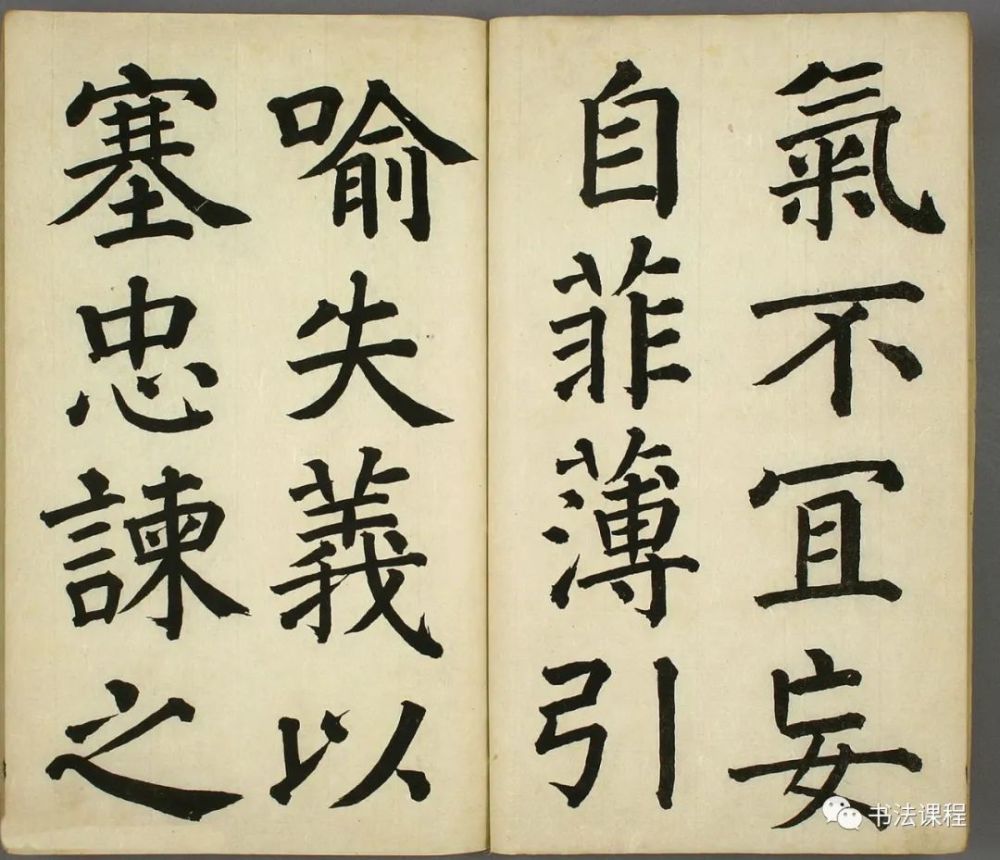 氣不冝妄
自菲薄引
喻失義以
塞忠諫之
书法课程